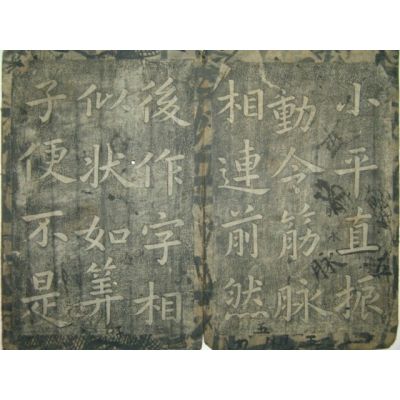 小平直振
動令筋脉
相連前然
後作字相
似状如筭
子便不是